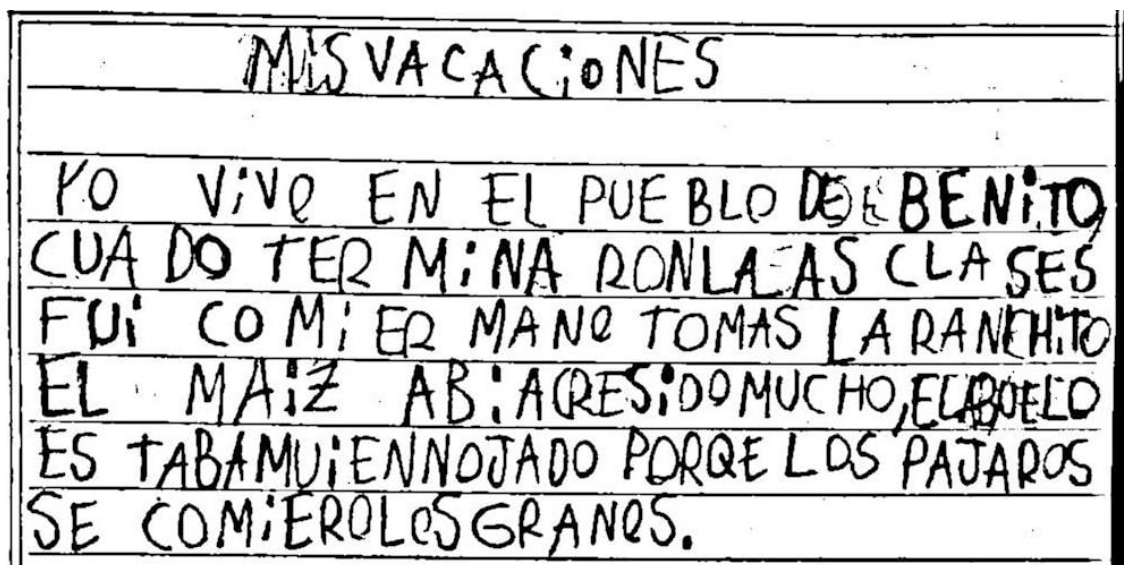 MiS VACACiONES
YO ViVO EN EL PUEBLO DE BENiTO,
CUA DO TER MiNA RONLA AS CLA SES
FUi CO Mi ER MANO TOMAS LA RANCHiTO
EL MAiZ ABiA CRESiDO MUCHO, EL ABUELO
ES TABAMUiENNOJADO PORQE LOS PAJAROS
SE COMiEROLOSGRANOS.